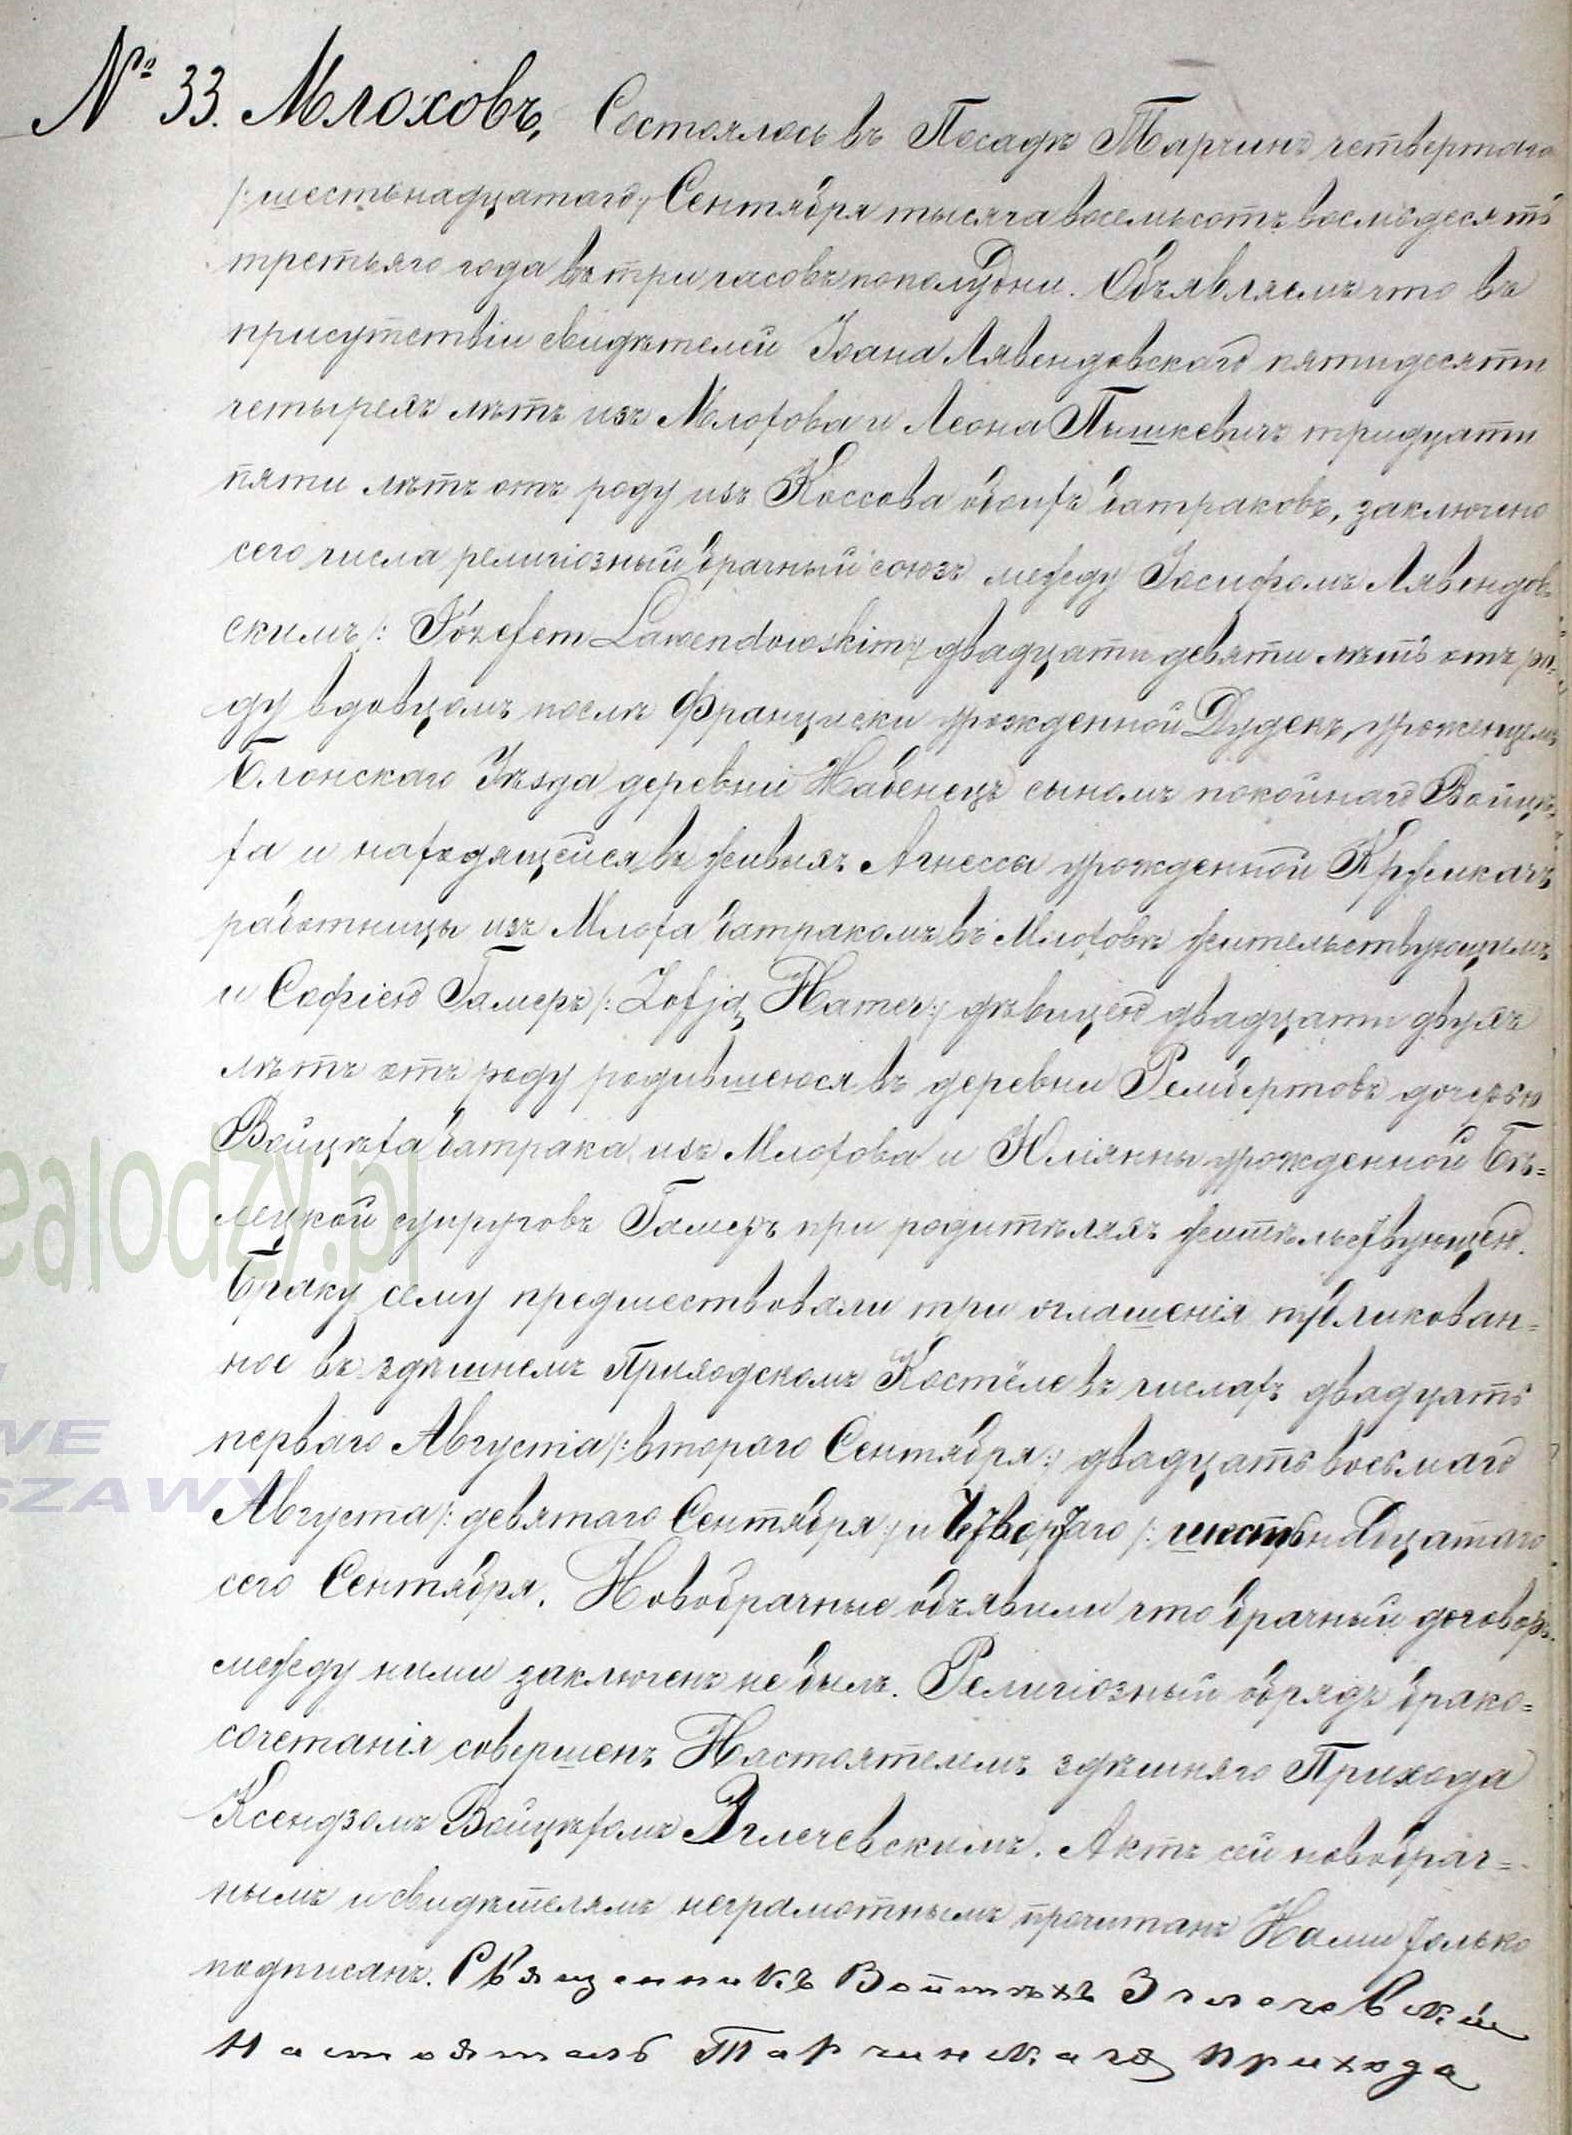 № 33. Млоховъ, Состоялось въ Посадѣ Тарчинѣ четвертаго
/: шестьнадцатаго :/ Сентября тысяча восемьсотъ восмьдесятъ
третьяго года въ три часовъ пополудни. Объявляемъ что въ
присутствіи свидѣтелей Іоана Лявендовскаго пятидесяти
четырехъ лѣтъ изъ Млохова и Леона Пышкевичъ тридцати
пяти лѣтъ отъ роду изъ Коссова обоихъ батраковъ, заключено
сего числа религіозный брачный союзъ между Іосифомъ Лявендов-
скимъ /: Józefem Lawendowskim :/ двадцати девяти лѣтъ отъ ро-
ду вдовцомъ послѣ Франциски урожденной Дудекъ, уроженцемъ
Блонскаго Уѣзда деревни Жабенецъ сыномъ покойнаго Войцѣ-
ха и находящейся въ живыхъ Агнессы урожденной
работницы изъ Млоха батракомъ въ Млоховѣ жительствующимъ
и Софіею Гамеръ /: Zofją Hamer :/ дѣвицею двадцати двухъ
лѣтъ отъ роду родившеюся въ деревни Рембертовъ дочерью
Войцѣха батрака изъ Млохова и Юліянны урожденной Бѣ=
лецкой супруговъ Гамеръ при родитѣляхъ житѣльствующею.
Браку сему предшествовали три оглашенія публикован=
ное въ здѣшнемъ Приходскомъ Костёле въ числахъ двадцать
перваго Августа /: втораго Сентября :/ двадцать восьмаго
Августа /: девятаго Сентября :/ и Четвертаго /: шестьнадцатаго
сего Сентября. Новобрачные объявили что брачный договоръ
между ними заключенъ небылъ. Религіозный обрядъ брако=
сочетанія совершенъ Настоятелемъ здѣшняго Прихода
Ксендзомъ Войцѣхомъ Зглечевскимъ. Актъ сей новобрач=
нымъ и свидѣтелямъ неграмотнымъ прочитанъ Нами только
подписанъ. Священникъ Войтѣхъ Зглечевскій
Настоятель Тарчинскаго прихода
ealodzy.pl
WE
SZAWY